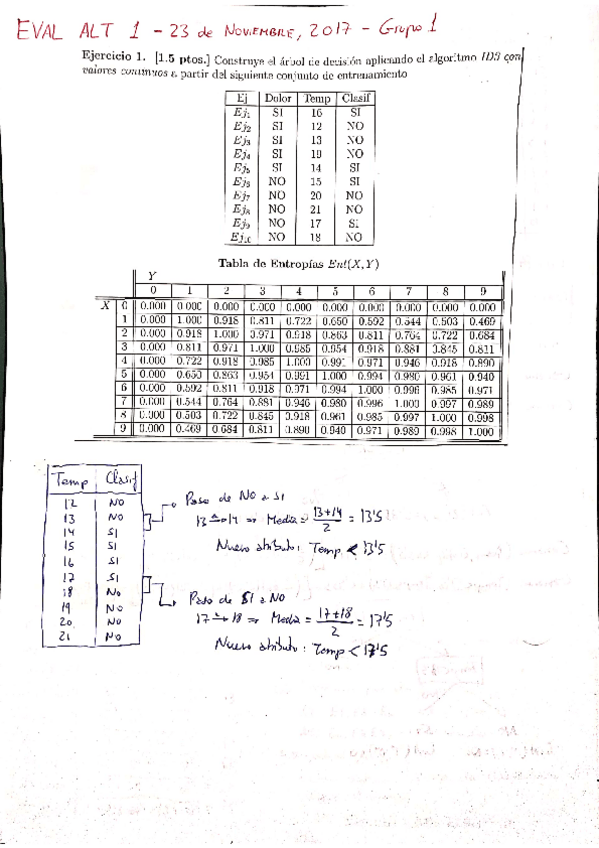 EVAL ALT 1 - 23 de NOVIEMBRE, 2017 - Grupo 1
Ejercicio 1. [1.5 ptos.] Construye el árbol de decisión aplicando el algoritmo ID3 con
valores continuos a partir del siguiente conjunto de entrenamiento
Ej Dolor Temp Clasif
Ej1 SI 16 SI
Ej2 SI 12 NO
Ej3 SI 13 NO
Ej4 SI 19 NO
Ej5 SI 14 SI
Ej6 NO 15 SI
Ej7 NO 20 NO
Ej8 NO 21 NO
Ej9 NO 17 SI
Ej10 NO 18 NO
Tabla de Entropías Ent(X,Y)
Y
0 1 2 3 4 5 6 7 8 9
X 0 0.000 0.000 0.000 0.000 0.000 0.000 0.000 0.000 0.000 0.000
1 0.000 1.000 0.918 0.811 0.722 0.650 0.592 0.544 0.503 0.469
2 0.000 0.918 1.000 0.971 0.918 0.863 0.811 0.764 0.722 0.684
3 0.000 0.811 0.971 1.000 0.985 0.954 0.918 0.881 0.845 0.811
4 0.000 0.722 0.918 0.985 1.000 0.991 0.971 0.946 0.918 0.890
5 0.000 0.650 0.863 0.954 0.991 1.000 0.994 0.980 0.961 0.940
6 0.000 0.592 0.811 0.918 0.971 0.994 1.000 0.996 0.985 0.971
7 0.000 0.544 0.764 0.881 0.946 0.980 0.996 1.000 0.997 0.989
8 0.000 0.503 0.722 0.845 0.918 0.961 0.985 0.997 1.000 0.998
9 0.000 0.469 0.684 0.811 0.890 0.940 0.971 0.989 0.998 1.000
Temp Clasif
12 NO
13 NO
14 SI
15 SI
16 SI
17 SI
18 NO
19 NO
20 NO
21 NO
Paso de NO a SI
13 → 14 ⇒ Media = 13+14/2 = 13'5
Nuevo atributo: Temp < 13'5
Paso de SI a NO
17 → 18 ⇒ Media = 17+18/2 = 17'5
Nuevo atributo: Temp < 17'5